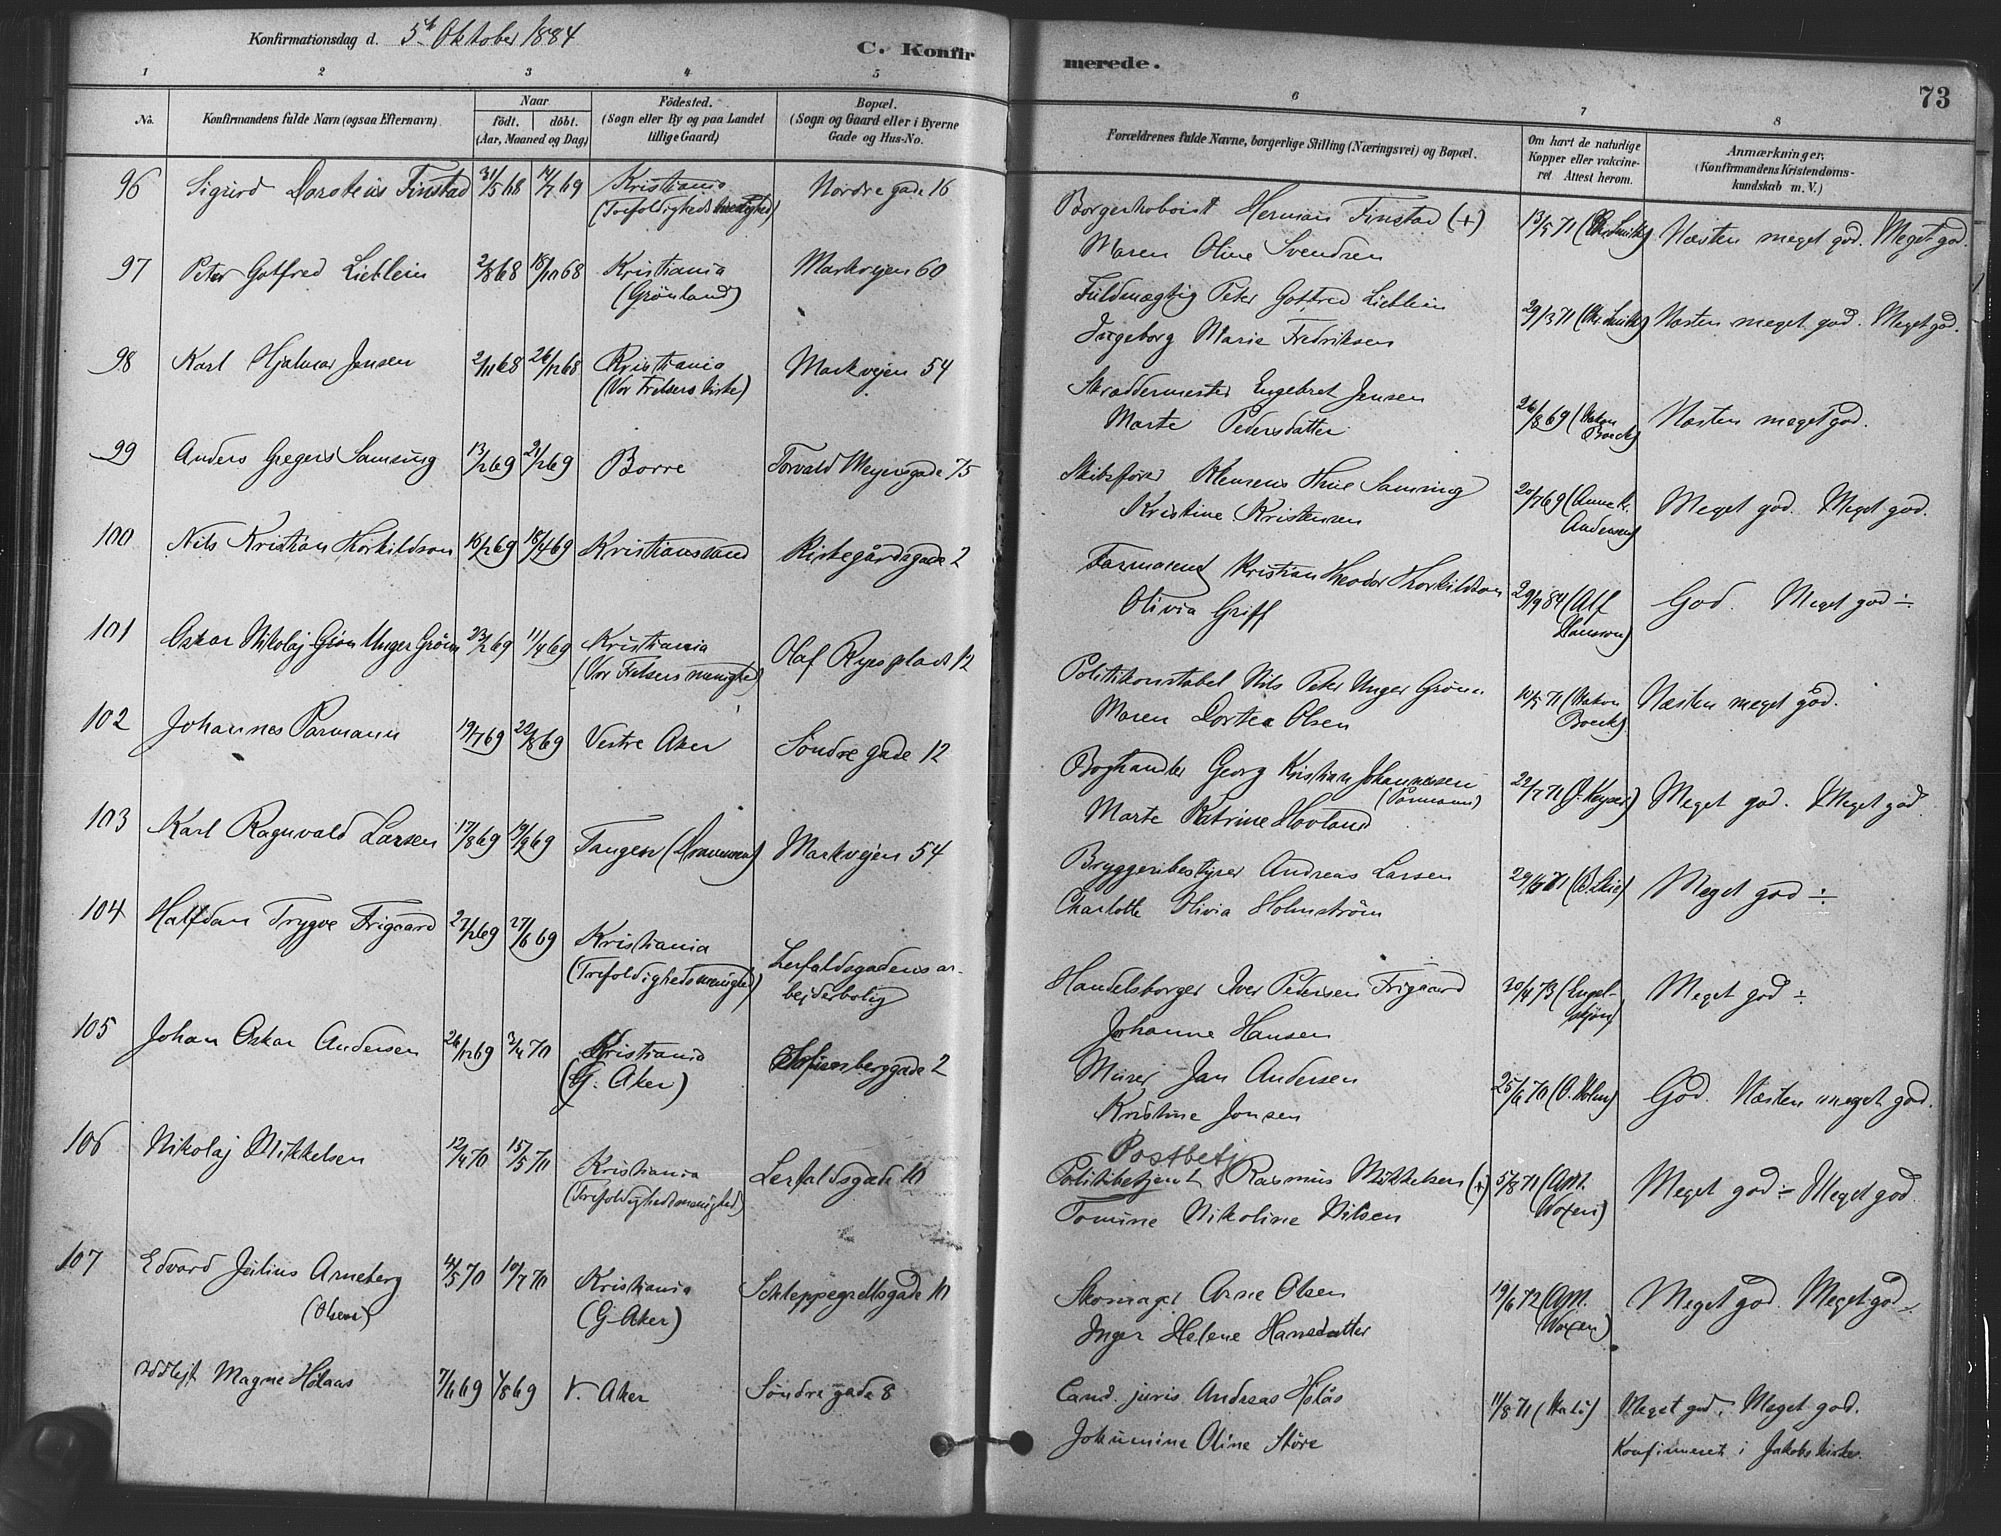 Konfirmationsdag d. 5te Oktober 1884
C. Konfirmerede.
73
1 2 3 4 5 6 7 8
No.
Konfirmandens fulde Navn (ogsaa Efternavn).
Naar
født. døbt.
(Aar, Maaned og Dag)
Fødested.
(Sogn eller By og paa Landet
tillige Gaard)
Bopæl.
(Sogn og Gaard eller i Byerne
Gade og Hus-No.
Forældrenes fulde Navne, borgerlige Stilling (Næringsvei) og Bopæl.
Om havt de naturlige
Kopper eller vakcine-
ret. Attest herom.
Anmærkninger.
(Konfirmandens Kristendoms-
kundskab m. V.)
96 Sigurd Dorsteus Finstad 31/5 68 14/7 69 Kristiania Nordre gade 16
(Trefoldigheds menighed)
Borgerhoboist Herman Finstad (+) 13/5 71 (Chr. Smith) Næsten meget god. Meget god.
Maren Oline Svendsen
97 Peter Gotfred Lieblein 2/8 68 18/10 68 Kristiania Markvejen 60
(Grønland)
Fuldmægtig Peter Gotfred Lieblein 29/3 71 (Chr. Smith) Næsten meget god. Meget god.
Ingeborg Marie Fredriksen
98 Karl Hjalmar Jensen 2/11 68 26/12 68 Kristiania Markvejen 54
(Vor Frelsers kirke)
Skræddermester Engebret Jensen 26/8 69 (Hakon Næsten meget god.
Marte Pedersdatter Boeck)
99 Anders Gregers Samsing 13/2 69 21/2 69 Borre Torvald Meyersgade 75
Skibsfører Klemens Hine Samsing 20/7 69 (Anne K. Meget god. Meget god.
Kristine Kristensen Andersen)
100 Nils Kristian Thorkildson 16/2 69 18/4 69 Kristianssand Kirkegårdsgade 2
Farmaceut Kristian Theodor Thorkildson 29/9 84 (Alf God. Meget god ÷
Olivia Griff Hanson)
101 Oskar Nikolaj Unger Grønn 23/2 69 11/4 69 Kristiania Olaf Ryes plads 12
(Vor Frelsers menighed)
Politikonstabel Nils Peter Unger Grønn 10/5 71 (Hakon Næsten meget god.
Maren Dortea Olsen Boeck)
102 Johannes Parmann 19/7 69 22/8 69 Vestre Aker Søndre gade 12
Boghandler Georg Kristian Johannesen 22/7 71 (J. Keyser) Meget god. Meget god
(Parmann)
Marte Katrine Hovland
103 Karl Ragnvald Larsen 17/8 69 19/9 69 Tangen (Drammen) Markvejen 54
Bryggeribestyrer Andreas Larsen Meget god ÷
Charlotte Olivia Holmström
104 Halfdan Trygve Frigaard 27/2 69 27/6 69 Kristiania Lerfaldsgadens ar-
(Trefoldighedsmenighed) bejderbolig
Handelsborger Iver Pedersen Frigaard 20/4 73 (Engel- Meget god ÷
Johanne Hansen
105 Johan Oskar Andersen 26/12 69 3/4 70 Kristiania
(G. Aker)
Murer Jan Andersen 25/6 70 (O. Holm) God. Næsten meget god.
Kristine Jonsen
106 Nikolaj Mikkelsen 12/4 70 15/5 70 Kristiania Lerfaldsgade 10
(Trefoldighedsmenighed)
Postbetj
Politibetjent Rasmus Mikkelsen (+) 5/8 71 (Am. Meget god ÷ Meget god.
Tomine Nikoline Nilsen Woxen)
107 Edvard Julius Arneberg 4/5 70 10/7 70 Kristiania Schleppegrellsgade 10
(Olsen) (G. Aker)
Skomager Arne Olsen 19/6 72 (Am. Meget god. Meget god ÷
Inger Helene Hansdatter Woxen)
Magne Hølaas 7/6 69 1/8 69 V. Aker Søndre gade 8
Cand. juris Andreas Hølås 11/8 71 Meget god. Meget god.
Johannine Oline Støre Konfirmeret i Jakobs kirke.